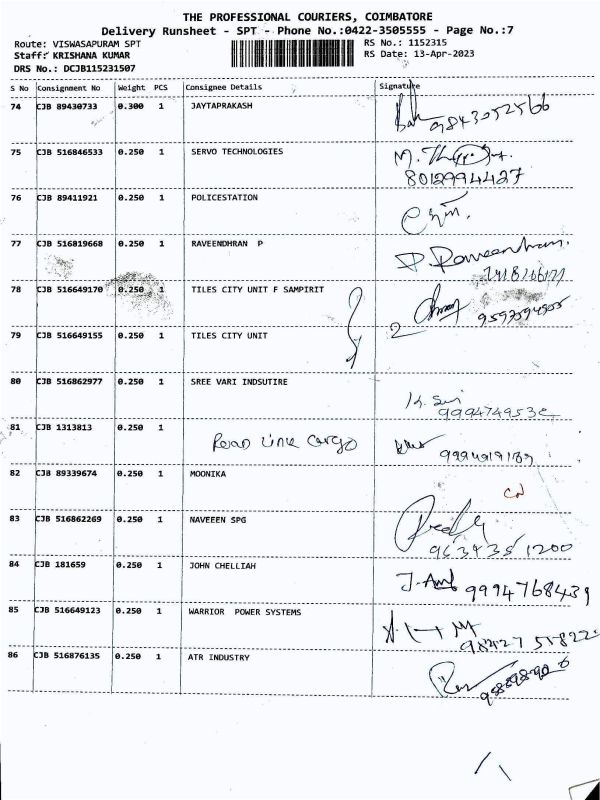 THE PROFESSIONAL COURIERS, COIMBATORE
Delivery Runsheet - SPT - Phone No.:0422-3505555 - Page No.:7
Route: VISWASAPURAM SPT
RS No.: 1152315
Staff: KRISHANA KUMAR
RS Date: 13-Apr-2023
DRS No.: DCJB115231507
S No Consignment No Weight PCS Consignee Details Signature
74 CJB 89430733 0.300 1 JAYTAPRAKASH
9843052566
75 CJB 516846533 0.250 1 SERVO TECHNOLOGIES
8012994427
76 CJB 89411921 0.250 1 POLICESTATION
77 CJB 516819668 0.250 1 RAVEENDHRAN P
P. Raveendhran.
78 CJB 516649170 0.250 1 TILES CITY UNIT F SAMPIRIT
79 CJB 516649155 0.250 1 TILES CITY UNIT
2
80 CJB 516862977 0.250 1 SREE VARI INDSUTIRE
81 CJB 1313813 0.250 1
Road Line Cargo
82 CJB 89339674 0.250 1 MOONIKA
83 CJB 516862269 0.250 1 NAVEEEN SPG
84 CJB 181659 0.250 1 JOHN CHELLIAH
9994768439
85 CJB 516649123 0.250 1 WARRIOR POWER SYSTEMS
86 CJB 516876135 0.250 1 ATR INDUSTRY